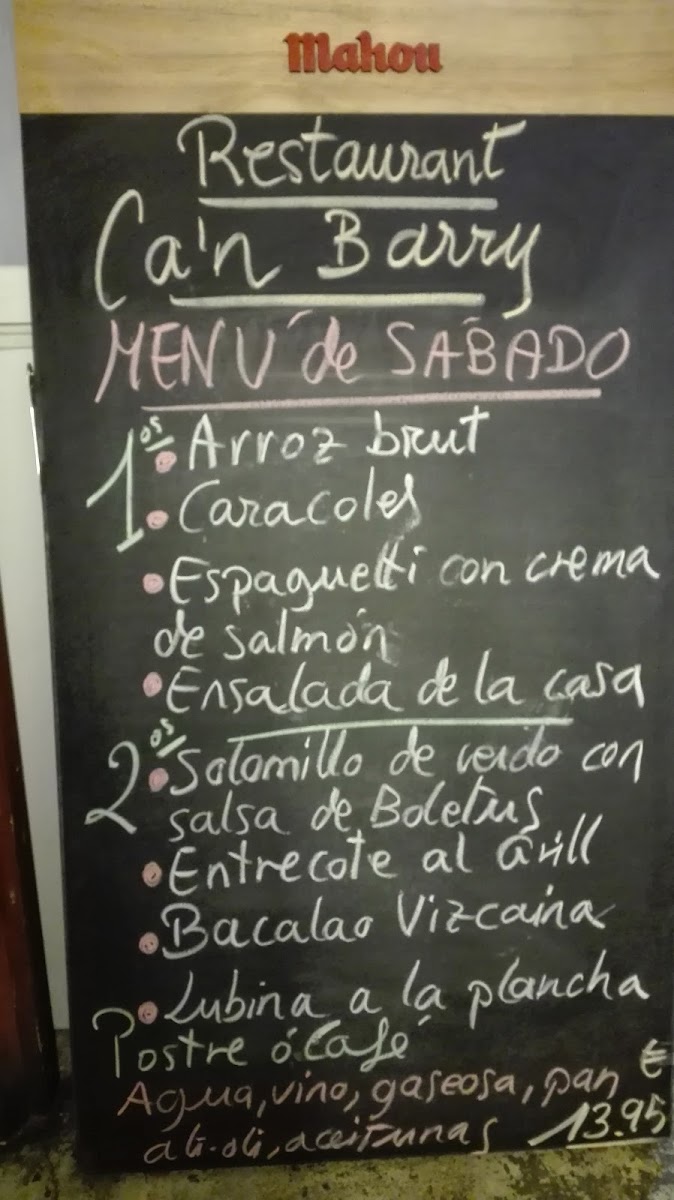 Mahou
Restaurant
Ca'n Barry
MENÚ de SÁBADO
1os • Arroz brut
• Caracoles
• Espaguetti con crema
de salmón
• Ensalada de la casa
2os • Solomillo de cerdo con
salsa de Boletus
• Entrecote al Grill
• Bacalao Vizcaina
• Lubina a la plancha
Postre ó Café
Agua, vino, gaseosa, pan €
ali-oli, aceitunas 13.95